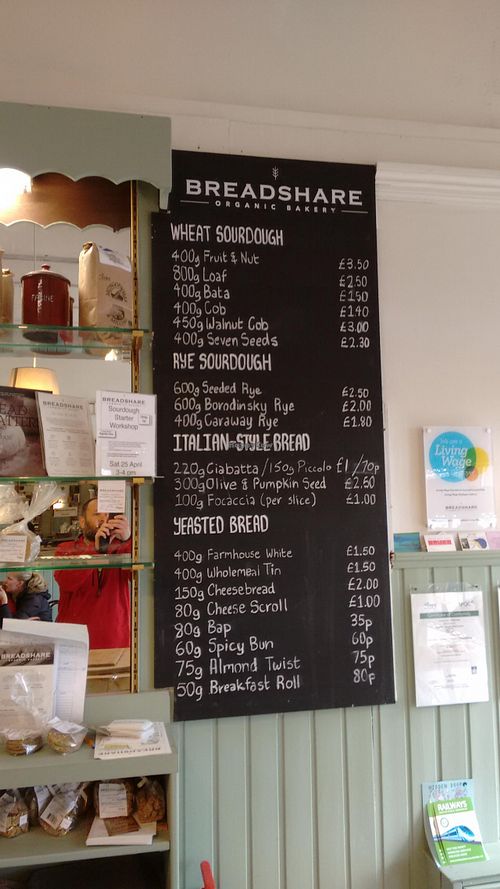 BREADSHARE
ORGANIC BAKERY
WHEAT SOURDOUGH
400g Fruit & Nut £3.50
800g Loaf £2.50
400g Bata £1.50
400g Cob £1.40
450g Walnut Cob £3.00
400g Seven Seeds £2.30
RYE SOURDOUGH
600g Seeded Rye £2.50
600g Borodinsky Rye £2.00
400g Caraway Rye £1.80
ITALIAN-STYLE BREAD
220g Ciabatta / 150g Piccolo £1 / 70p
300g Olive & Pumpkin Seed £2.50
100g Focaccia (per slice) £1.00
YEASTED BREAD
400g Farmhouse White £1.50
400g Wholemeal Tin £1.50
150g Cheesebread £2.00
80g Cheese Scroll £1.00
80g Bap 35p
60g Spicy Bun 60p
75g Almond Twist 75p
50g Breakfast Roll 80p
BREADSHARE
BREADSHARE
Sourdough
Starter
Workshop
Sat 25 April
3-4 pm
We are a
Living
Wage
BREADSHARE
BREADSHARE
RAILWAYS